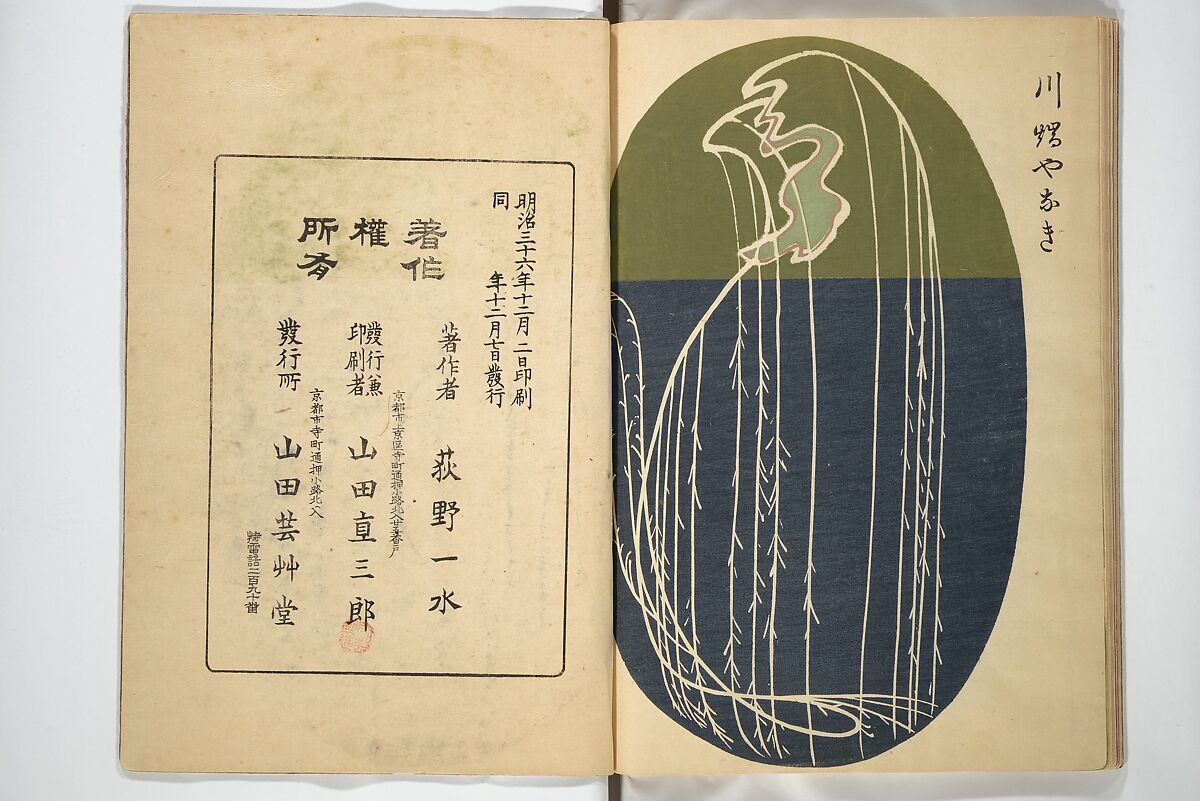 川端やなき
明治三十六年十二月二日印刷
同年十二月七日發行
著作
權
所有
著作者 荻野一水
京都市上京區寺町通押小路北入廿五番戸
發行兼
印刷者 山田直三郎
京都市寺町通押小路北入
發行所 山田芸艸堂
電話二百九十番